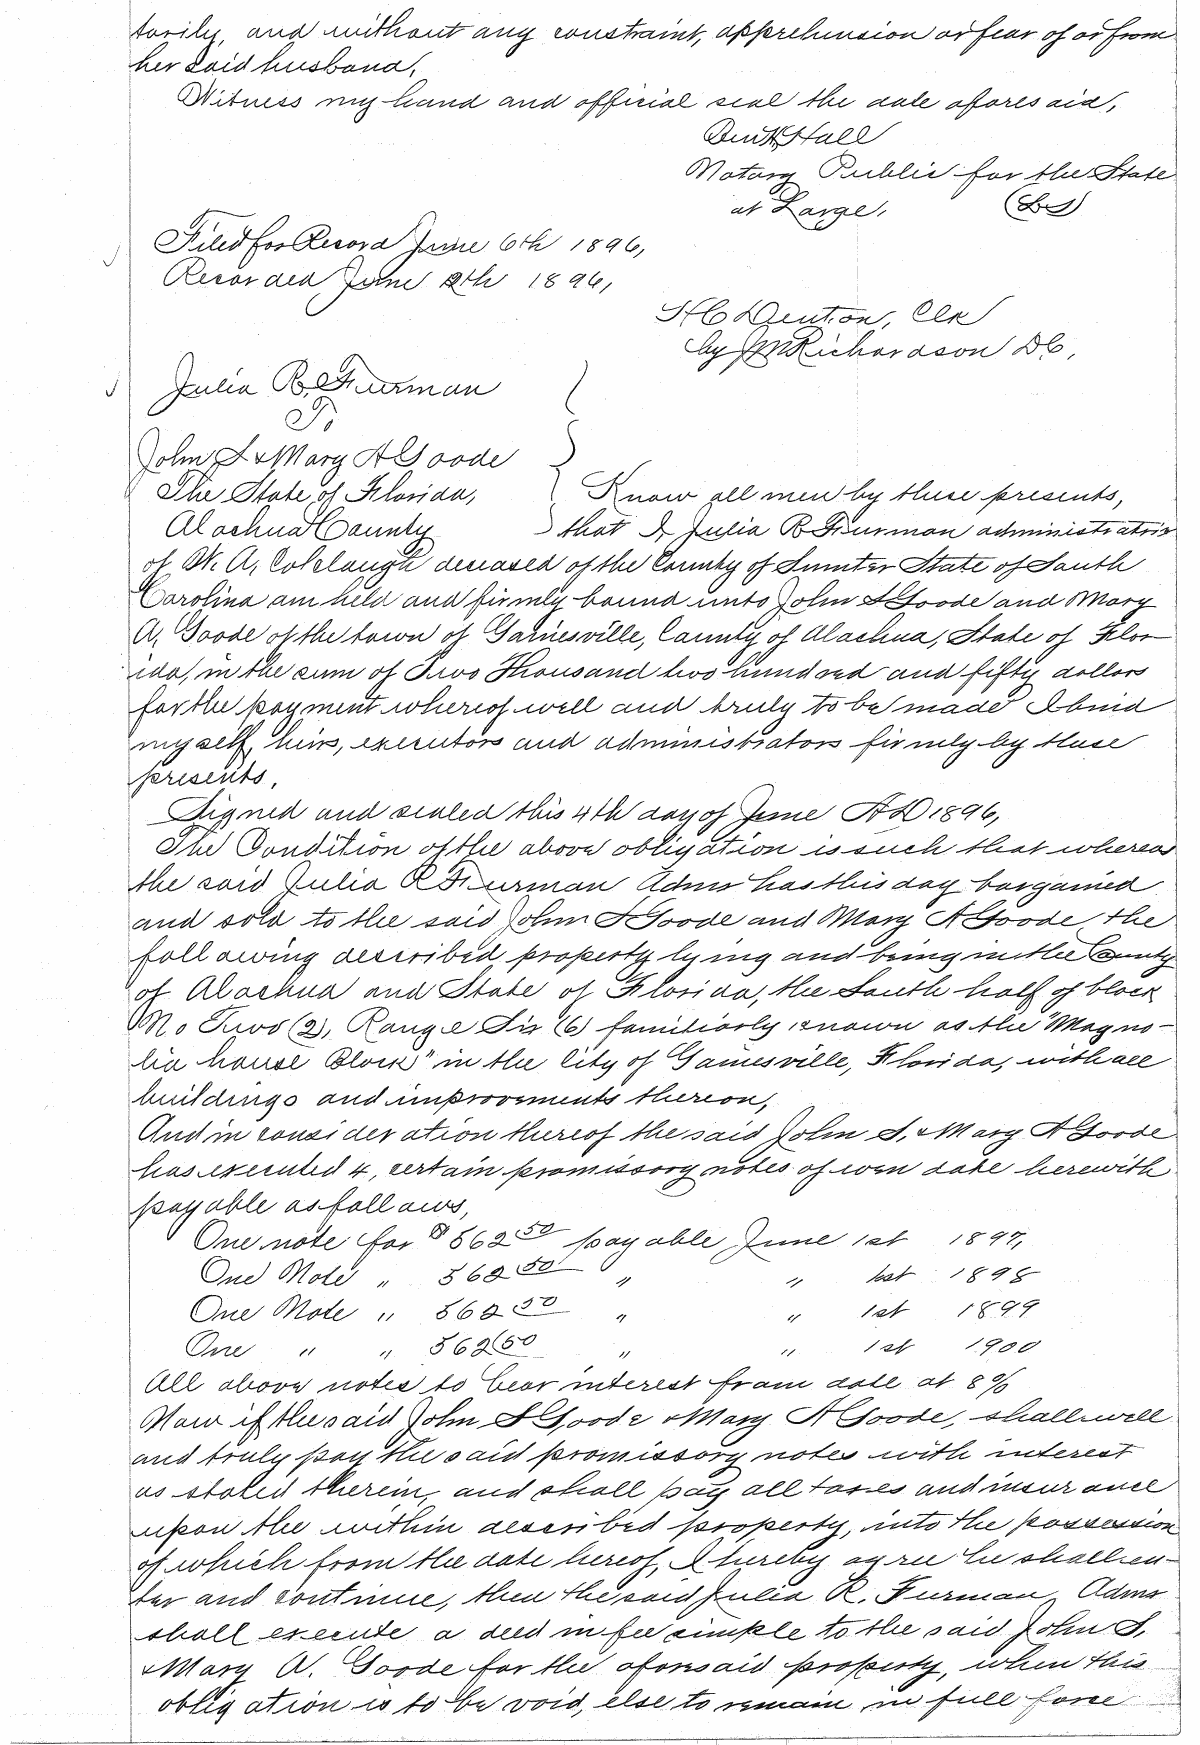 tarily, and without any constraint, apprehension or fear of or from
her said husband,
Witness my hand and official seal the date aforesaid,
Hall
Notary Public for the State
at Large, (LS)
Filed for Record June 6th 1896,
Recorded June 8th 1896,
H C Denton, Clk
by J M Richardson D C,
Julia R. Furman
To
John S & Mary A Goode
The State of Florida, Know all men by these presents,
Alachua County that I, Julia R Furman administratrix
of W. A. deceased of the County of Sumter State of South
Carolina am held and firmly bound unto John S Goode and Mary
A, Goode of the town of Gainesville, County of Alachua, State of Flor-
ida, in the sum of Two Thousand two hundred and fifty dollars
for the payment whereof well and truly to be made I bind
myself, heirs, executors and administrators firmly by these
presents,
Signed and sealed this 4th day of June AD 1896,
The Condition of the above obligation is such that whereas
the said Julia R Furman Admx has this day bargained
and sold to the said John S Goode and Mary A Goode, the
following described property lying and being in the County
of Alachua and State of Florida, the South half of block
No Two (2), Range Six (6) familiarly known as the "Magno-
lia house Block" in the City of Gainesville, Florida, with all
buildings and improvements thereon,
And in consideration thereof the said John S. & Mary A Goode
has executed 4, certain promissory notes of even date herewith
payable as follows,
One note for $562 50 payable June 1st 1897,
One Note " 562 50 " " 1st 1898
One Note " 562 50 " " 1st 1899
One " " 562 50 " " 1st 1900
All above notes to bear interest from date at 8%
Now if the said John S Goode & Mary A Goode, shall well
and truly pay the said promissory notes with interest
as stated therein, and shall pay all taxes and insurance
upon the within described property, into the possession
of which from the date hereof, I hereby agree he shall en-
ter and continue, then the said Julia R. Furman, Admx
shall execute a deed in fee simple to the said John S.
& Mary A. Goode for the aforesaid property, when this
obligation is to be void, else to remain in full force